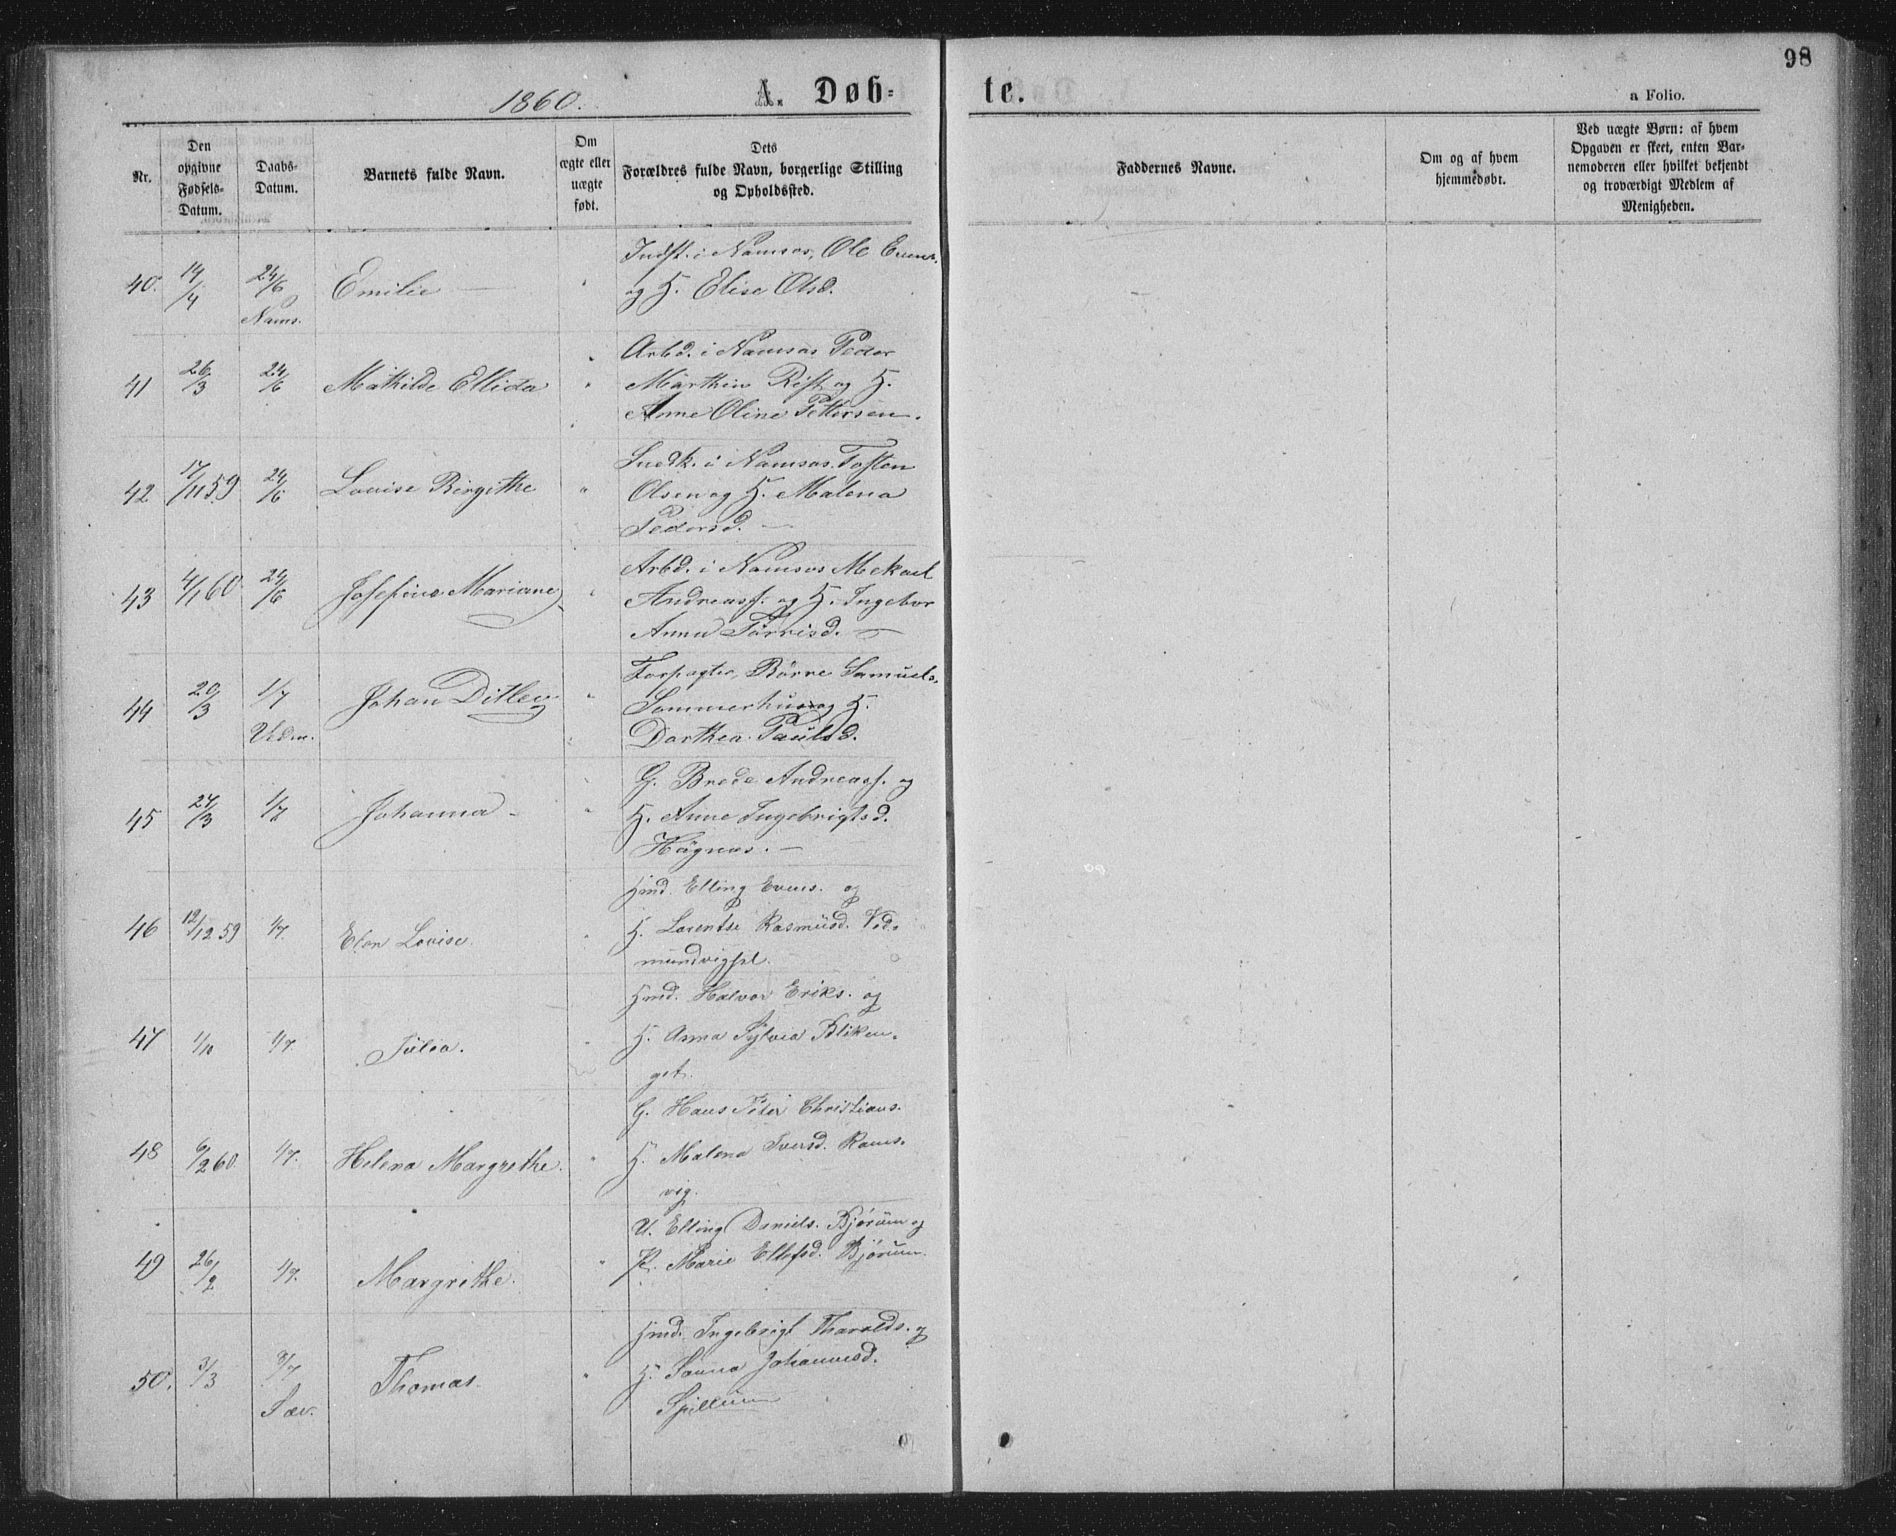 98
1860.
A. Døb-
te.
a Folio.
Nr.
Den
opgivne
Fødsels-
Datum.
Daabs-
Datum.
Barnets fulde Navn.
Om
ægte eller
uægte
født.
Dets
Forældres fulde Navn, borgerlige Stilling
og Opholdssted.
Faddernes Navne.
Om og af hvem
hjemmedøbt.
Ved uægte Børn: af hvem
Opgaven er skeet, enten Bar-
nemoderen eller hvilket bekjendt
og troværdigt Medlem af
Menigheden.
40. 14/4 24/6 Nams. Emilie "
Indst. i Namsos, Ole Evens.
og H. Elise Olsd.
41 26/3 24/6 Mathilde Ellida "
Arbd. i Namsos Peder
Marthin Rist og H.
Anne Oline Pettersen.
42 17/11 59 24/6 Lovise Birgithe "
Snedk. i Namsos Tosten
Olsen og H. Malena
Pedersd.
43 4/1 60 24/6 Josefine Mariane "
Arbd. i Namsos Mekael
Andreass. og H. Ingebor
Anna Torrisd.
44 20/3 1/7 Vedm. Johan Ditlev "
Forpagter, Börre Samuels.
Sommerhus og H.
Dorthea Paulsd.
45 27/3 1/7 Johanna "
G. Brede Andreass. og
H. Anne Ingebrigtsd.
Högnes.
46 12/12 59 1/7. Elen Lovise. "
Hmd. Elling Evens. og
H. Lorentse Rasmusd. Ved-
mundvigsel.
47 1/10 1/7. Julea. "
Hmd. Halvor Eriks. og
H. Anna Sylvea Bliken-
get.
48 6/2 60. 1/7. Helena Margrethe. "
G. Hans Peter Christians.
H. Malena Iversd. Rams-
vig.
49 26/2 1/7. Margrethe. "
U. Elling Daniels. Bjørum og
P. Marie Ellefsd. Bjørum.
50. 3/3 8/7 Sæv. Thomas. "
Hmd. Ingebrigt Tharalds. og
H. Sanna Johannesd.
Spillum